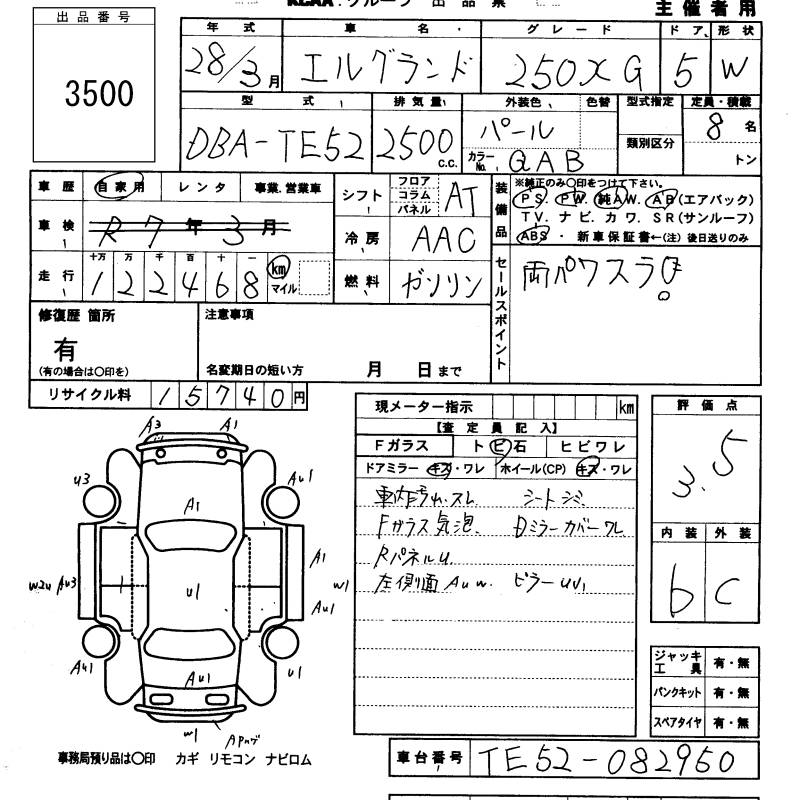 KCAA グループ 出品票
主催者用
出品番号
3500
年式 車名 グレード ドア 形状
28/3月 エルグランド 250XG 5 W
型式 排気量 外装色 色替 型式指定 定員・積載
DBA-TE52 2500c.c. パール 8名
類別区分
カラーNo. QAB トン
車歴 自家用 レンタ 事業.営業車
車検 R7年3月
走行 十万 万 千 百 十 一
122468 km マイル
シフト フロア コラム パネル AT
冷房 AAC
燃料 ガソリン
装備品 ※純正のみ〇印をつけて下さい。
PS. PW. 純AW. AB(エアバック)
TV. ナビ. カワ. SR(サンルーフ)
ABS ・ 新車保証書←(注) 後日送りのみ
セールスポイント
両パワスラ
修復歴 箇所
有
(有の場合は〇印を)
注意事項
名変期日の短い方 月 日まで
リサイクル料 15740円
現メーター指示 km
【査定員記入】
Fガラス トビ石 ヒビワレ
ドアミラー キズ・ワレ ホイール(CP) キズ・ワレ
車内汚れ.スレ シートシミ
Fガラス気泡. Dミラーカバーワレ
RパネルU.
左側面 AUW. ピラーUV1
評価点
3.5
内装 外装
b C
ジャッキ 工具 有・無
パンクキット 有・無
スペアタイヤ 有・無
A3 A1
U3 AU1
A1
W2U AU3 U1 A1 W1
AU1
AU1 AU1 U1
W1
事務局預り品は〇印 カギ リモコン ナビロム
車台番号 TE52-082950